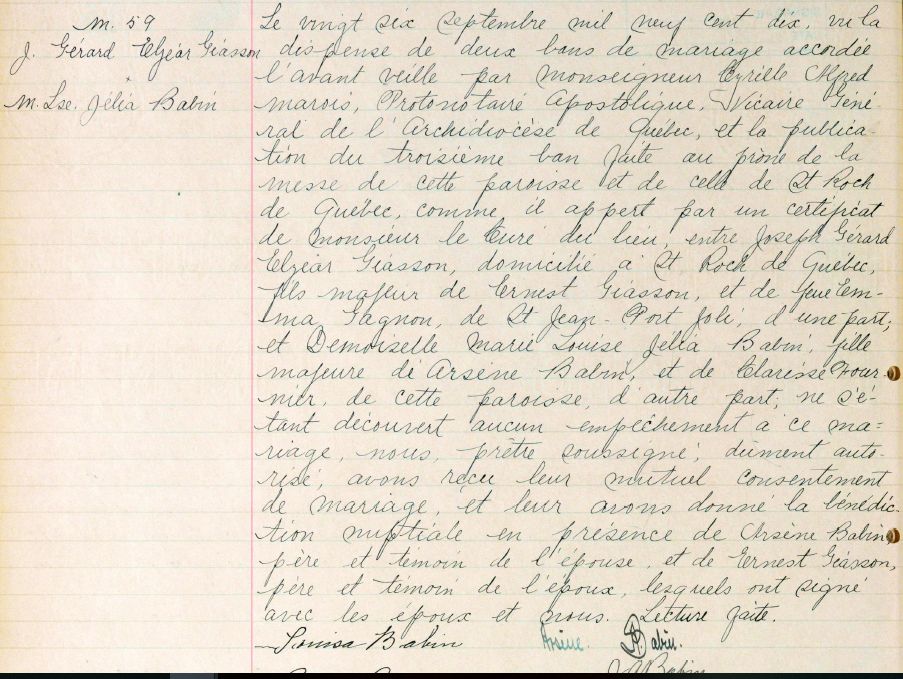 M. 59
J. Gérard Elzéar Giasson
M. Lse. Jélia Babin
Le vingt six septembre mil neuf cent dix, vu la
dispense de deux bans de mariage accordée
l'avant veille par Monseigneur Cyrille Alfred
Marois, Protonotaire Apostolique, Vicaire Géné-
ral de l'Archidiocèse de Québec, et la publica-
tion du troisième ban faite au prône de la
messe de cette paroisse et de celle de St Roch
de Québec, comme il appert par un certificat
de Monsieur le Curé du lieu, entre Joseph Gérard
Elzéar Giasson, domicilié à St Roch de Québec,
fils majeur de Ernest Giasson, et de feue Em-
ma Gagnon, de St Jean-Port Joli, d'une part;
et Demoiselle Marie Louise Jélia Babin, fille
majeure de Arsène Babin, et de Clarisse Four-
nier, de cette paroisse, d'autre part; ne s'é-
tant découvert aucun empêchement à ce ma=
riage, nous, prêtre soussigné, dûment auto-
risé, avons reçu leur mutuel consentement
de mariage, et leur avons donné la bénédic-
tion nuptiale en présence de Arsène Babin,
père et témoin de l'épouse, et de Ernest Giasson,
père et témoin de l'époux, lesquels ont signé
avec les époux et nous. Lecture faite.
Louisa Babin Arsène Babin.
Babin